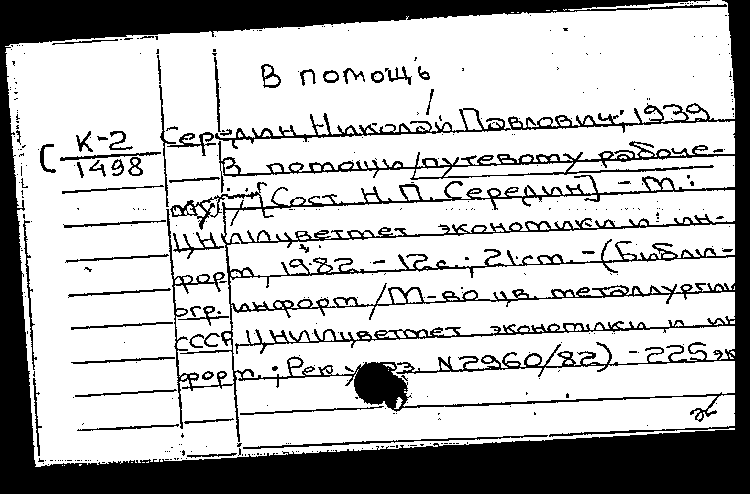 В помощь
Середин, Николай Павлович, 1939
К-2
1498
В помощь путевому рабоче-
му / [Сост. Н. П. Середин] - М.:
ЦНИИцветмет экономики и ин-
форм., 1982. - 12 с.; 21 см. - (Библи-
огр. информ. / М-во цв. металлургии
СССР, ЦНИИцветмет экономики и ин-
форм.; Рек. указ. N2960/82). - 225 эк